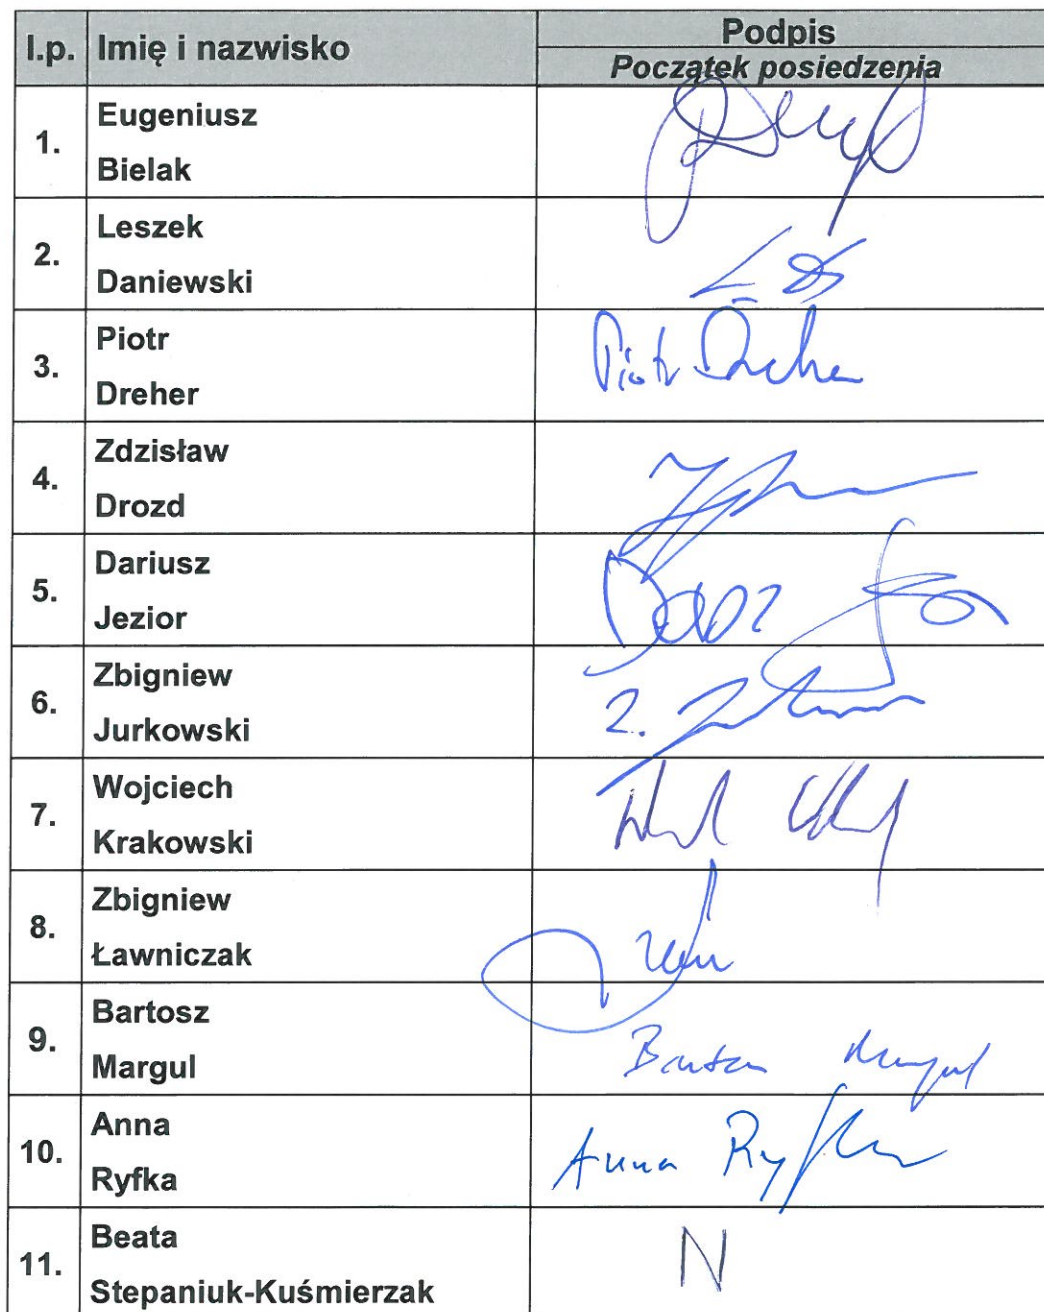 l.p. Imię i nazwisko Podpis
Początek posiedzenia
1. Eugeniusz
Bielak
2. Leszek
Daniewski
3. Piotr
Dreher
Piotr Dreher
4. Zdzisław
Drozd
5. Dariusz
Jezior
6. Zbigniew
Jurkowski
7. Wojciech
Krakowski
8. Zbigniew
Ławniczak
9. Bartosz
Margul
Bartosz Margul
10. Anna
Ryfka
Anna Ryfka
11. Beata
Stepaniuk-Kuśmierzak
N